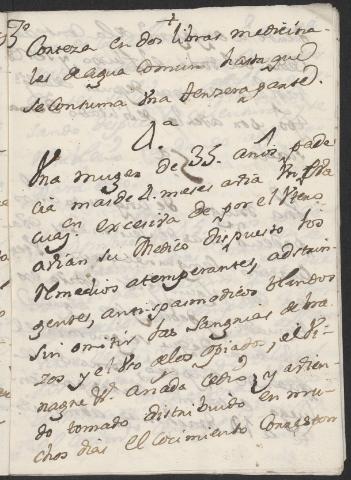 Corteza en dos libras medicina-
les de agua comun hasta que
se consuma una tersera parte.
4.ª
Una muger de 35. años, pade
cia mas de 4. meses avia un flu
en excesiva de por el Utero
avian su Medico dispuesto los
remedios atemperantes, adstrin-
gentes, antispasmodicos blandos
sin omitir las sangrias de bra-
zos y el uso de los opiados, el Vi-
nagre
do tomado distribuido en mu-
chos dias el cocimiento